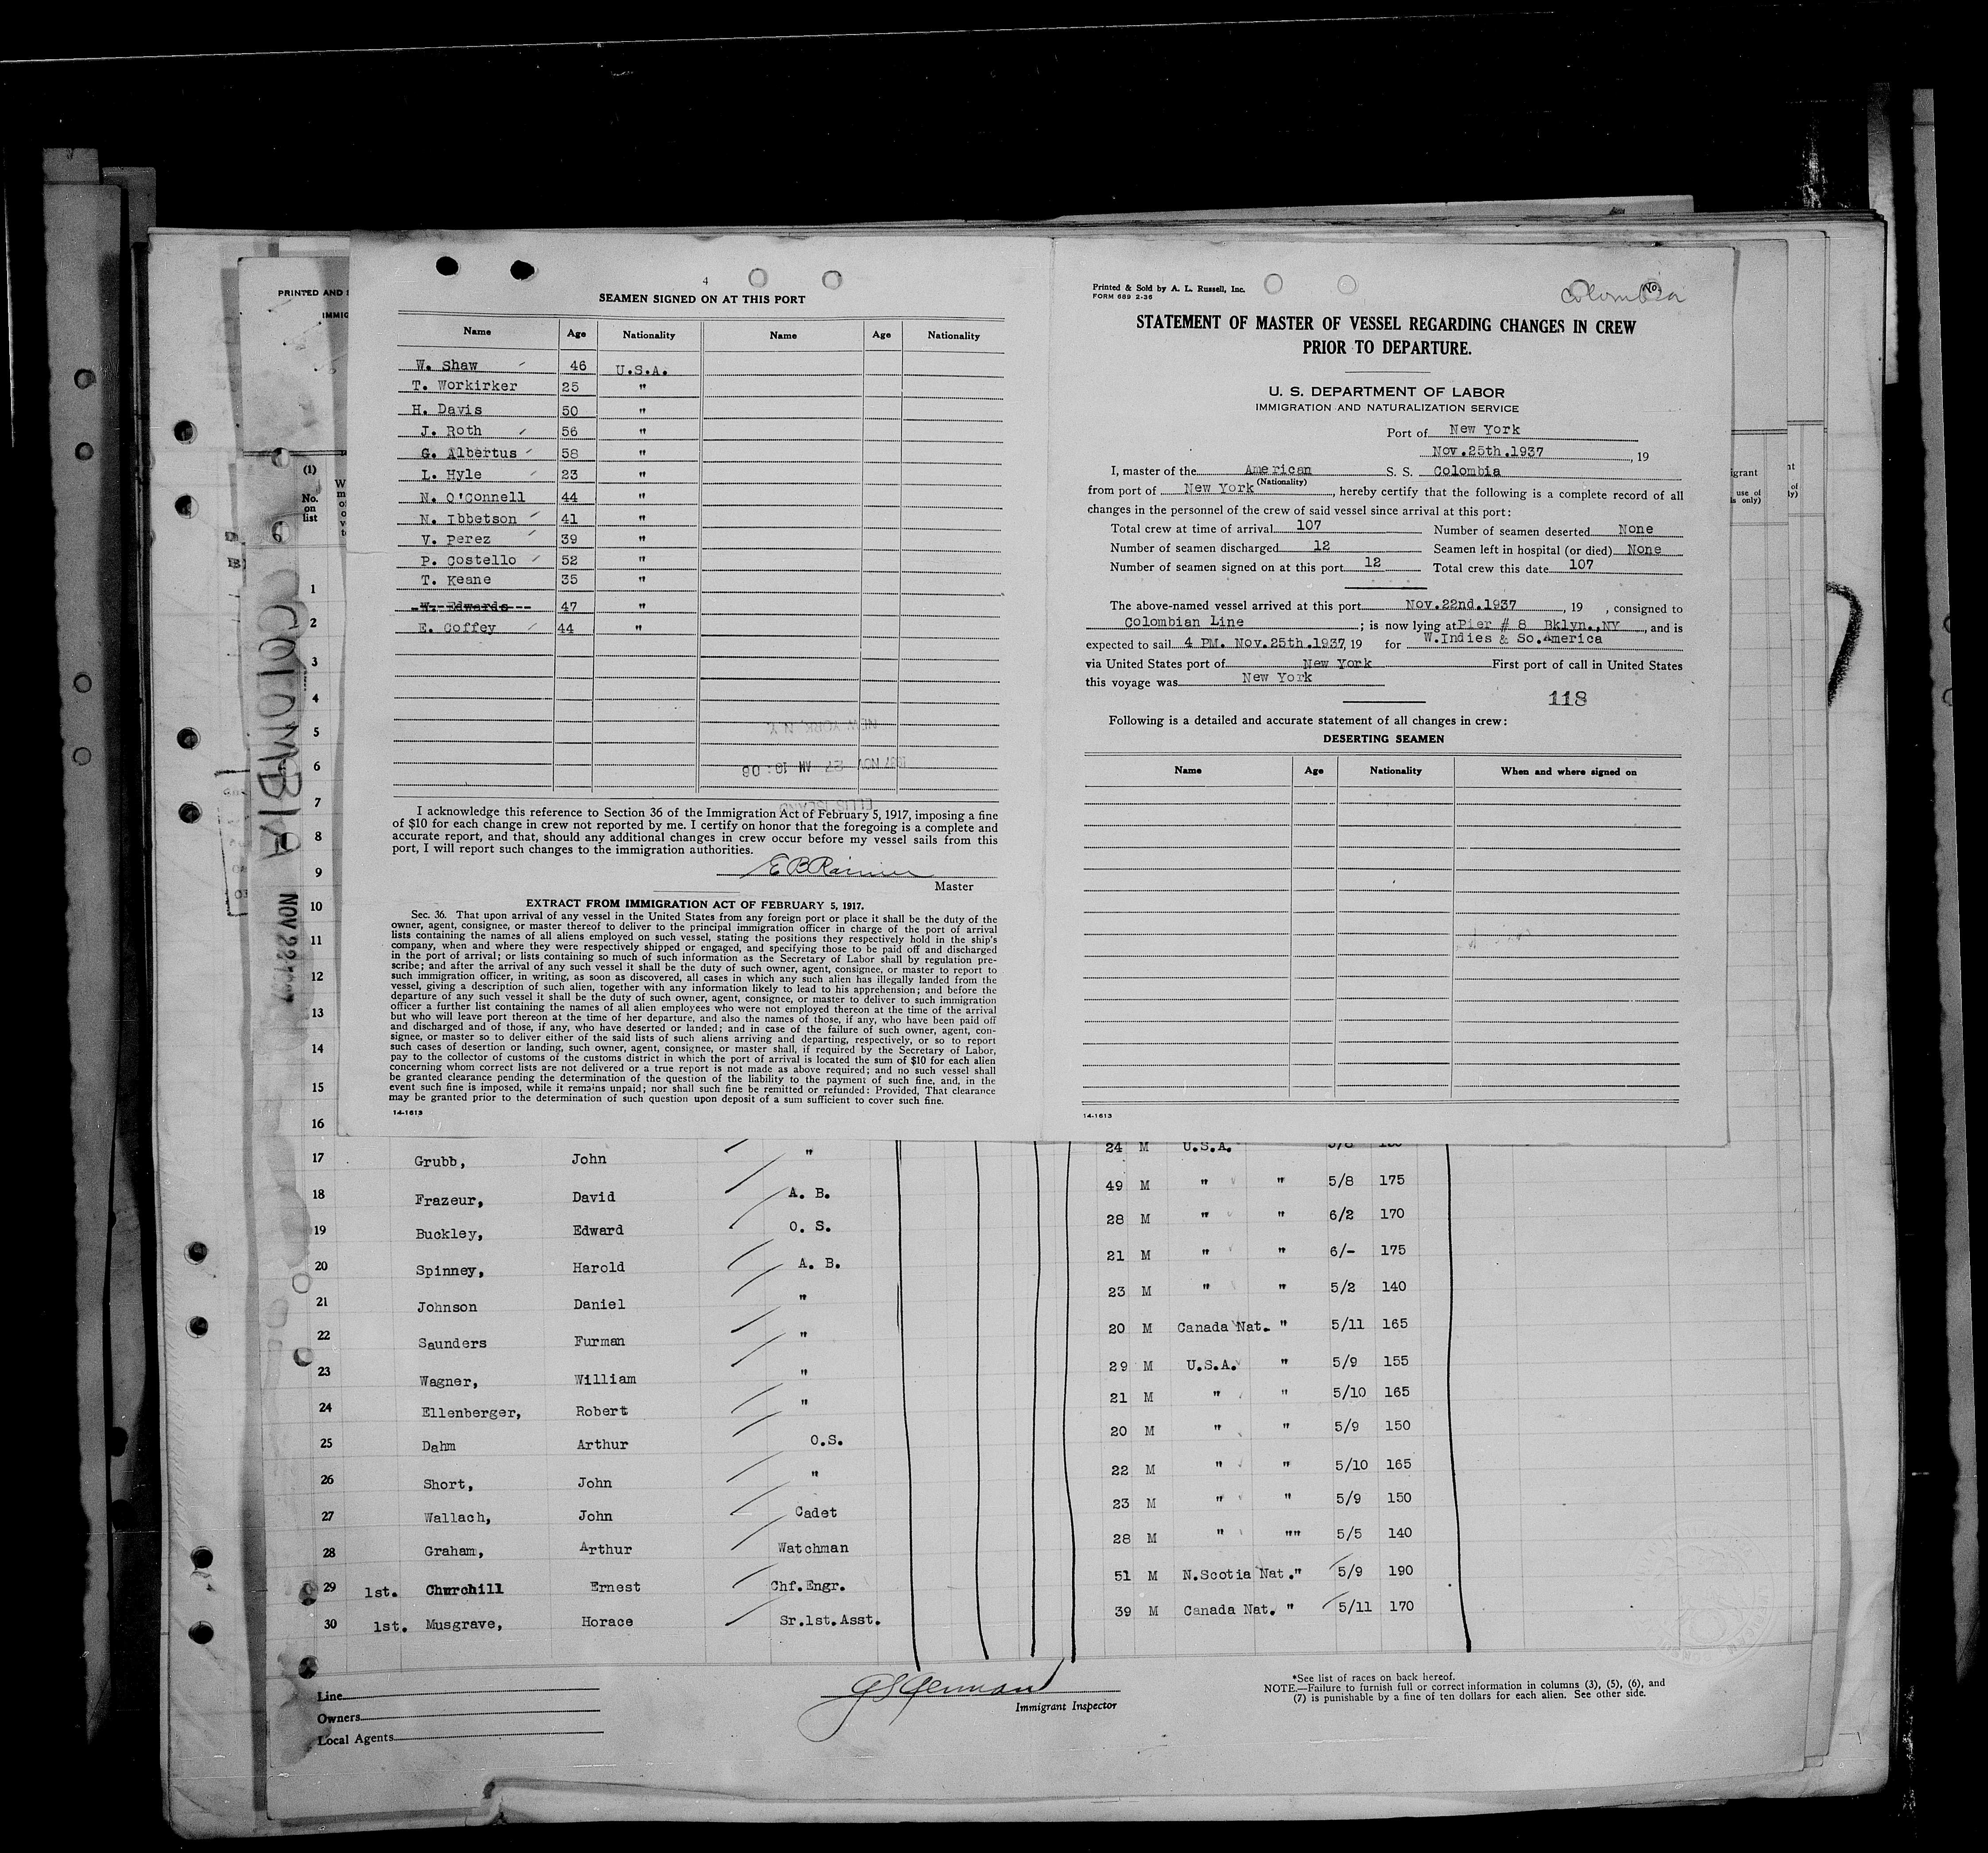 4
SEAMEN SIGNED ON AT THIS PORT
Name Age Nationality Name Age Nationality
W. Shaw 46 U.S.A.
T. Workirker 25 "
H. Davis 50 "
J. Roth 56 "
G. Albertus 58 "
L. Hyle 23 "
N. O'Connell 44 "
N. Ibbetson 41 "
V. Perez 39 "
P. Costello 52 "
T. Keane 35 "
W. Edwards 47 "
E. Coffey 44 "
NEW YORK, N.Y.
1937 NOV 27 AM 10:06
ELLIS ISLAND
I acknowledge this reference to Section 36 of the Immigration Act of February 5, 1917, imposing a fine
of $10 for each change in crew not reported by me. I certify on honor that the foregoing is a complete and
accurate report, and that, should any additional changes in crew occur before my vessel sails from this
port, I will report such changes to the immigration authorities.
E B
Master
EXTRACT FROM IMMIGRATION ACT OF FEBRUARY 5, 1917.
Sec. 36. That upon arrival of any vessel in the United States from any foreign port or place it shall be the duty of the
owner, agent, consignee, or master thereof to deliver to the principal immigration officer in charge of the port of arrival
lists containing the names of all aliens employed on such vessel, stating the positions they respectively hold in the ship's
company, when and where they were respectively shipped or engaged, and specifying those to be paid off and discharged
in the port of arrival; or lists containing so much of such information as the Secretary of Labor shall by regulation pre-
scribe; and after the arrival of any such vessel it shall be the duty of such owner, agent, consignee, or master to report to
such immigration officer, in writing, as soon as discovered, all cases in which any such alien has illegally landed from the
vessel, giving a description of such alien, together with any information likely to lead to his apprehension; and before the
departure of any such vessel it shall be the duty of such owner, agent, consignee, or master to deliver to such immigration
officer a further list containing the names of all alien employees who were not employed thereon at the time of the arrival
but who will leave port thereon at the time of her departure, and also the names of those, if any, who have been paid off
and discharged and of those, if any, who have deserted or landed; and in case of the failure of such owner, agent, con-
signee, or master so to deliver either of the said lists of such aliens arriving and departing, respectively, or so to report
such cases of desertion or landing, such owner, agent, consignee, or master shall, if required by the Secretary of Labor,
pay to the collector of customs of the customs district in which the port of arrival is located the sum of $10 for each alien
concerning whom correct lists are not delivered or a true report is not made as above required; and no such vessel shall
be granted clearance pending the determination of the question of the liability to the payment of such fine, and, in the
event such fine is imposed, while it remains unpaid; nor shall such fine be remitted or refunded: Provided, That clearance
may be granted prior to the determination of such question upon deposit of a sum sufficient to cover such fine.
14-1613
Printed & Sold by A. L. Russell, Inc.
FORM 689 2-36
No.
Colombia
STATEMENT OF MASTER OF VESSEL REGARDING CHANGES IN CREW
PRIOR TO DEPARTURE.
U. S. DEPARTMENT OF LABOR
IMMIGRATION AND NATURALIZATION SERVICE
Port of New York
Nov.25th.1937, 19
I, master of the American S. S. Colombia
(Nationality)
from port of New York, hereby certify that the following is a complete record of all
changes in the personnel of the crew of said vessel since arrival at this port:
Total crew at time of arrival 107 Number of seamen deserted None
Number of seamen discharged 12 Seamen left in hospital (or died) None
Number of seamen signed on at this port 12 Total crew this date 107
The above-named vessel arrived at this port Nov.22nd.1937, 19 , consigned to
Colombian Line; is now lying at Pier # 8 Bklyn.,NY, and is
expected to sail 4 PM. Nov.25th.1937, 19 for W.Indies & So.America
via United States port of New York First port of call in United States
this voyage was New York
118
Following is a detailed and accurate statement of all changes in crew:
DESERTING SEAMEN
Name Age Nationality When and where signed on
14-1613
PRINTED AND
IMMIG
(1)
No.
on
list
COLOMBIA
NOV 22 1937
1
2
3
4
5
6
7
8
9
10
11
12
13
14
15
16
24 M U.S.A.
17 Grubb, John " 49 M " " 5/8 175
18 Frazeur, David A. B. 28 M " " 6/2 170
19 Buckley, Edward O. S. 21 M " " 6/- 175
20 Spinney, Harold A. B. 23 M " " 5/2 140
21 Johnson Daniel " 20 M Canada Nat. " 5/11 165
22 Saunders Furman " 29 M U.S.A. " 5/9 155
23 Wagner, William " 21 M " " 5/10 165
24 Ellenberger, Robert " 20 M " " 5/9 150
25 Dahm Arthur O.S. 22 M " " 5/10 165
26 Short, John " 23 M " " 5/9 150
27 Wallach, John Cadet 28 M " "" 5/5 140
28 Graham, Arthur Watchman 51 M N.Scotia Nat." 5/9 190
29 1st. Churchill Ernest Chf.Engr. 39 M Canada Nat. " 5/11 170
30 1st. Musgrave, Horace Sr.1st.Asst.
Line
Owners
Local Agents
Immigrant Inspector
*See list of races on back hereof.
NOTE.—Failure to furnish full or correct information in columns (3), (5), (6), and
(7) is punishable by a fine of ten dollars for each alien. See other side.